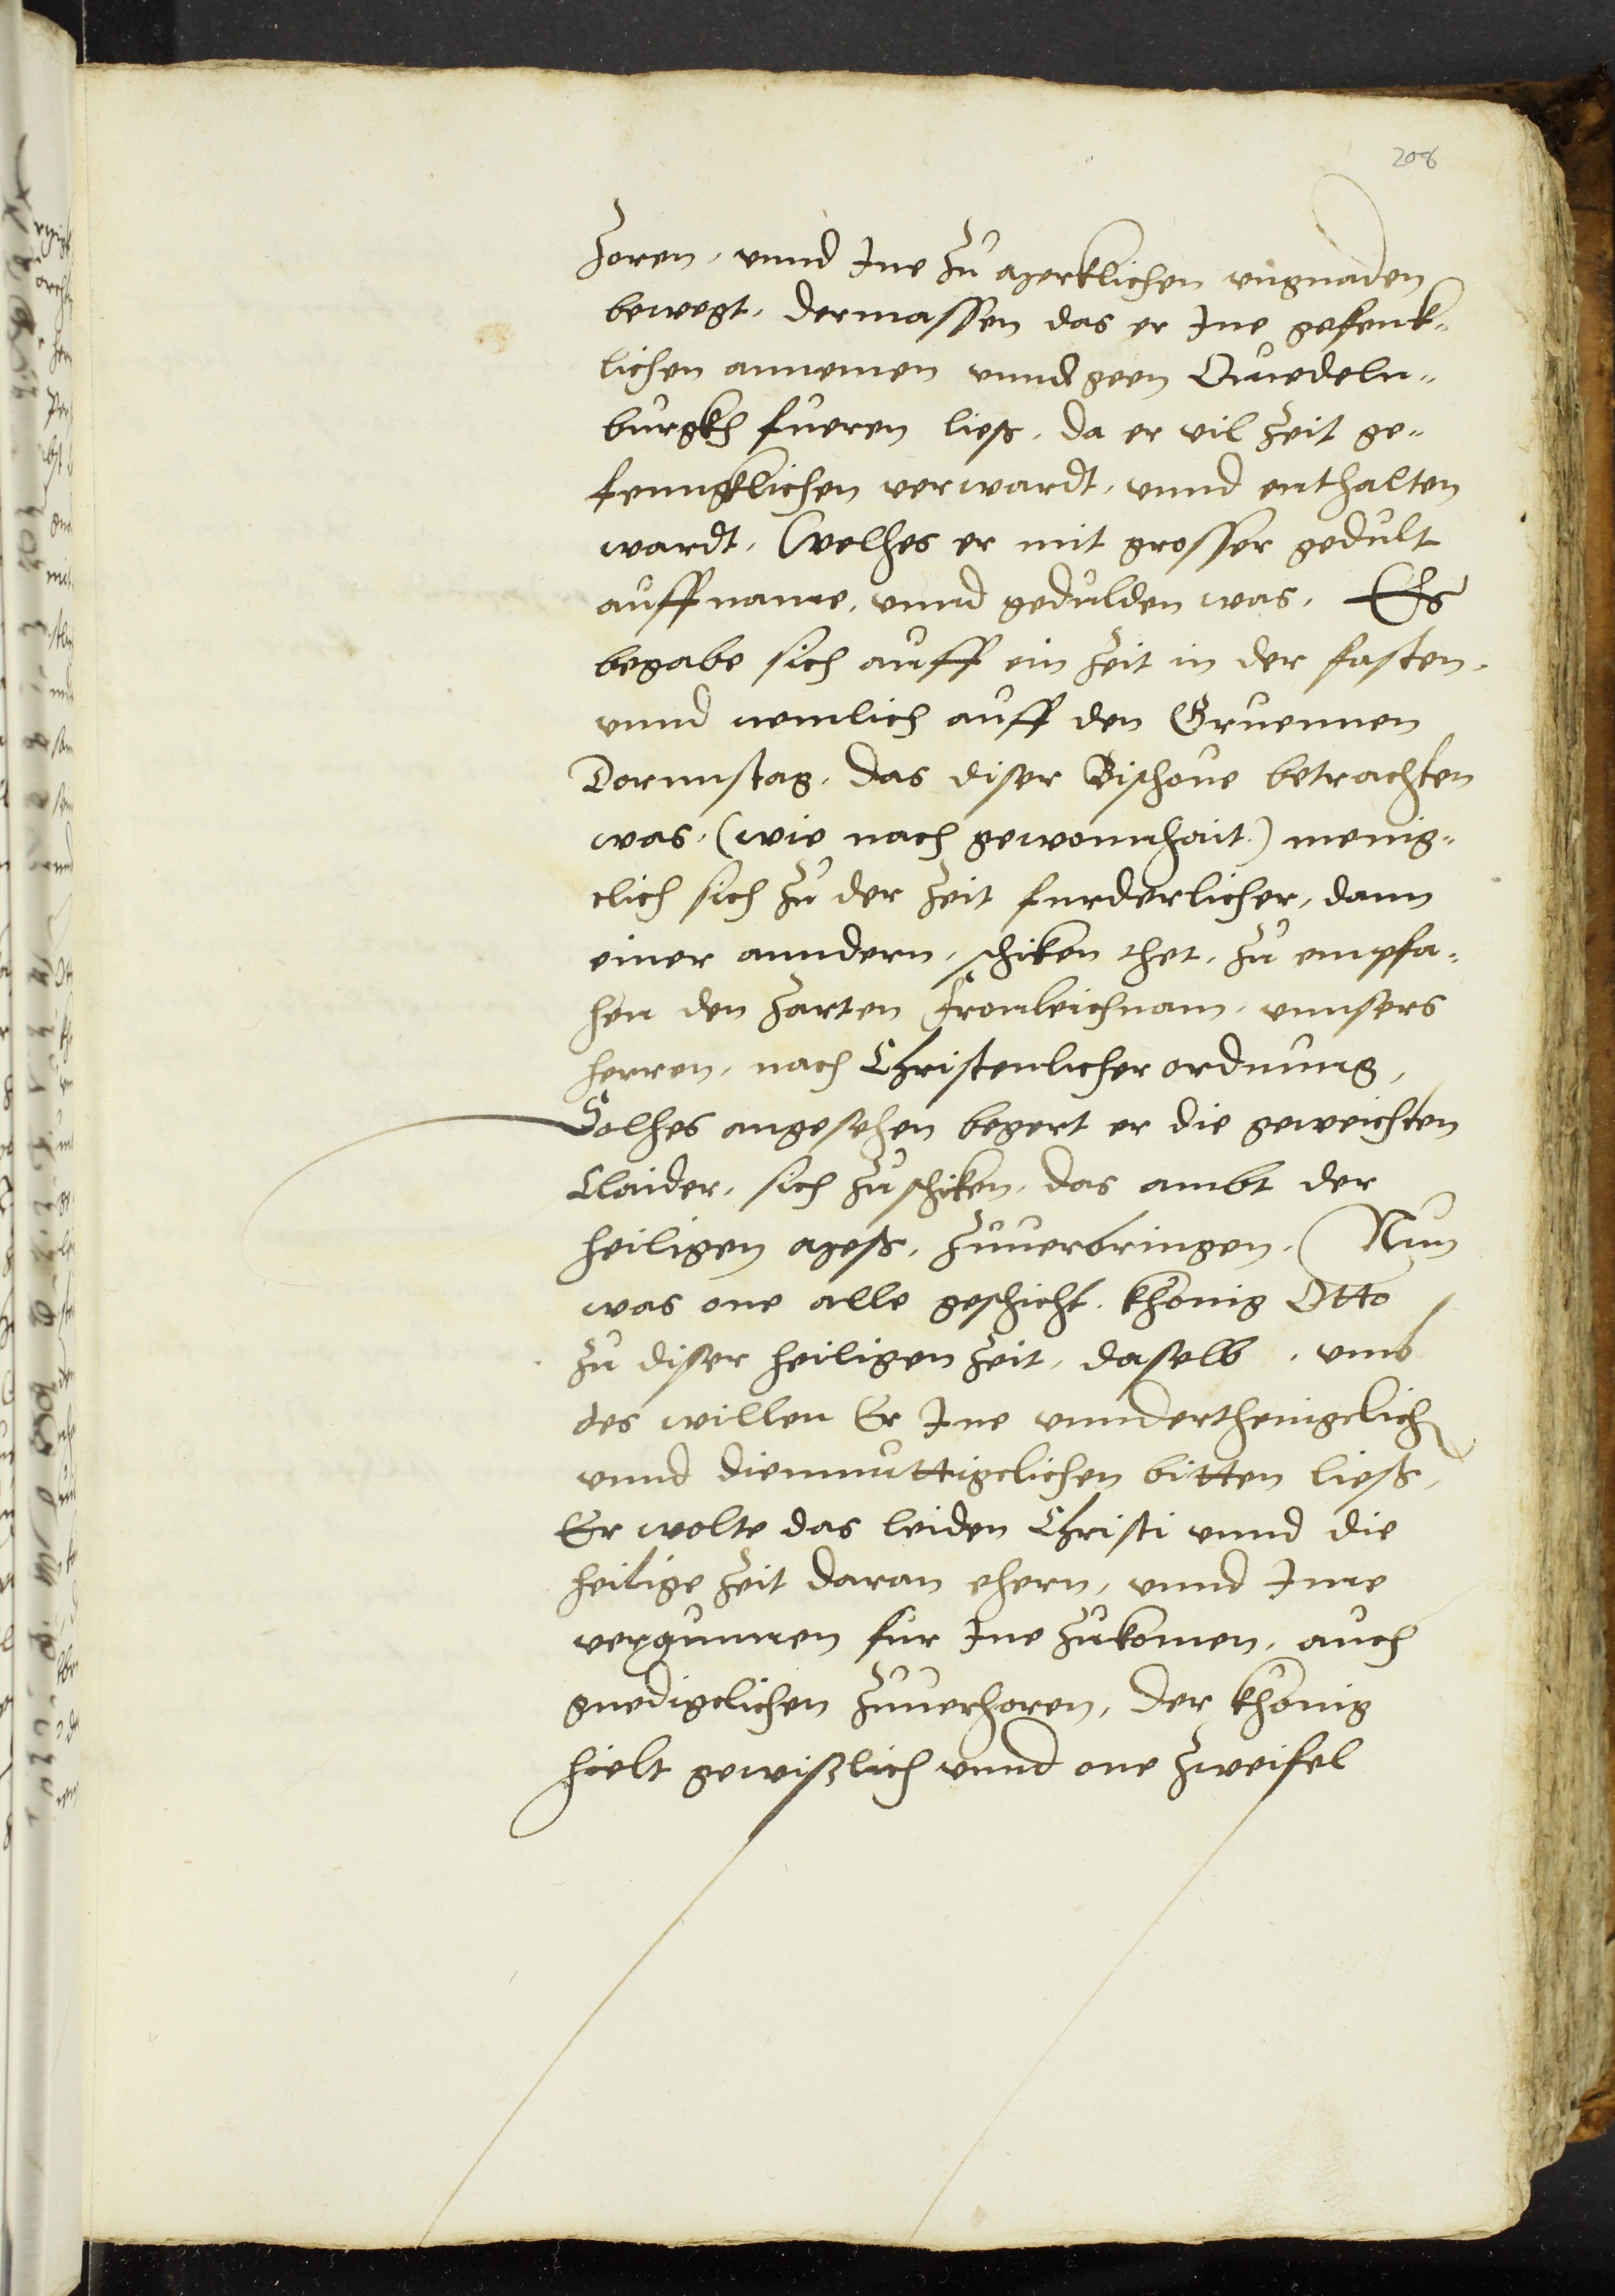 208
Zoren, vnnd Ine zu merklichen vngnaden
bewegt, dermassen das er Ine gefenk-
lichen annemen vnnd geen Quedeln-
burgkh fueren ließ, da er vil Zeit ge-
fenngklichen verwardt, vnnd enthalten
wardt, Welhes er mit grosser gedult
auffname, vnnd gedulden was, Es
begabe sich auff ein Zeit in der fasten,
vnnd nemlich auff den Gruennen
Dornnstag, das diser Bischoue betrachten
was, (wie nach gewonnhait) menig-
clich sich zu der Zeit furderlicher, dann
einer anndern, schiken thet, zu empfa-
hen den zarten fronleichnam, vnnsers
herren, nach Christenlicher ordnung,
Solhes angesehen begert er die geweichten
Claider, sich zuschiken, das ambt der
heiligen meß, zuuerbringen, Nun
was one alle geschicht, khönig Otto
zu diser heiligen Zeit, daselb, vmb
des willen Er Ine vnnderthenigclich
vnnd diemnuttigclichen bitten ließ,
Er wolte das leiden Christi vnnd die
heilige Zeit daran ehern, vnnd Ime
vergunnen fur Ine zukomen, auch
gnedigclichen zuuerhoren, der khönig
hielt gewißlich vnnd one Zweifel